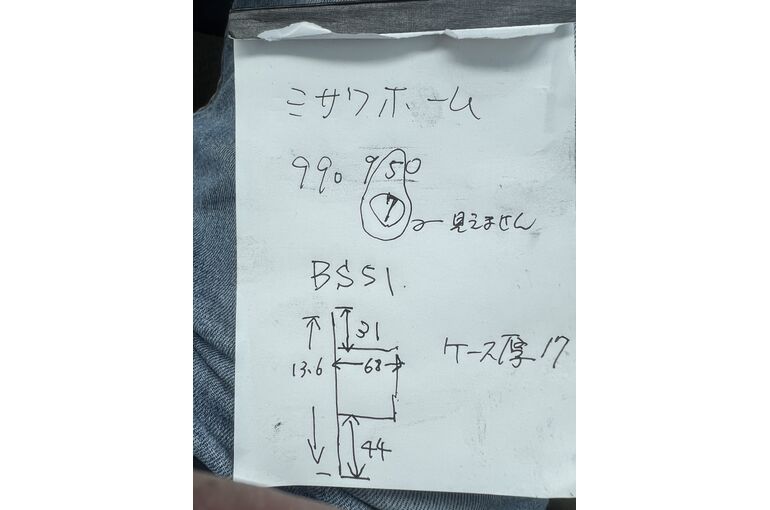 ミサワホーム
990 950
7 見えません
BS51.
31
ケース厚17
13.6 68
44